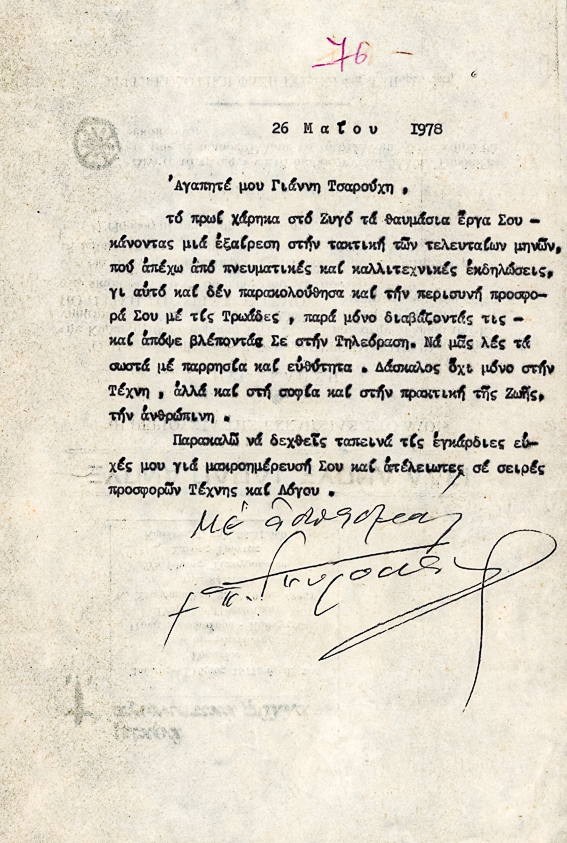 76 -
26 Μαΐου 1978
Ἀγαπητέ μου Γιάννη Τσαρούχη ,
τό πρωί χάρηκα στό Ζυγό τά θαυμάσια ἔργα Σου -
κάνοντας μιά ἐξαίρεση στήν τακτική τῶν τελευταίων μηνῶν,
πού ἀπέχω ἀπό πνευματικές καί καλλιτεχνικές ἐκδηλώσεις,
γι αὐτό καί δέν παρακολούθησα καί τήν περισυνή προσφο-
ρά Σου μέ τίς Τρωάδες , παρά μόνο διαβάζοντάς τις -
καί ἀπόψε βλέποντάς Σε στήν Τηλεόραση. Νά μᾶς λές τά
σωστά μέ παρρησία καί εὐθύτητα . Δάσκαλος ὄχι μόνο στήν
Τέχνη , ἀλλά καί στή σοφία καί στήν πρακτική τῆς Ζωῆς,
τήν ἀνθρώπινη .
Παρακαλῶ νά δεχθεῖς ταπεινά τίς ἐγκάρδιες εὐ-
χές μου γιά μακροημέρευσή Σου καί ἀτέλειωτες σέ σειρές
προσφορῶν Τέχνης καί Λόγου .
Μέ ἀσπασμούς